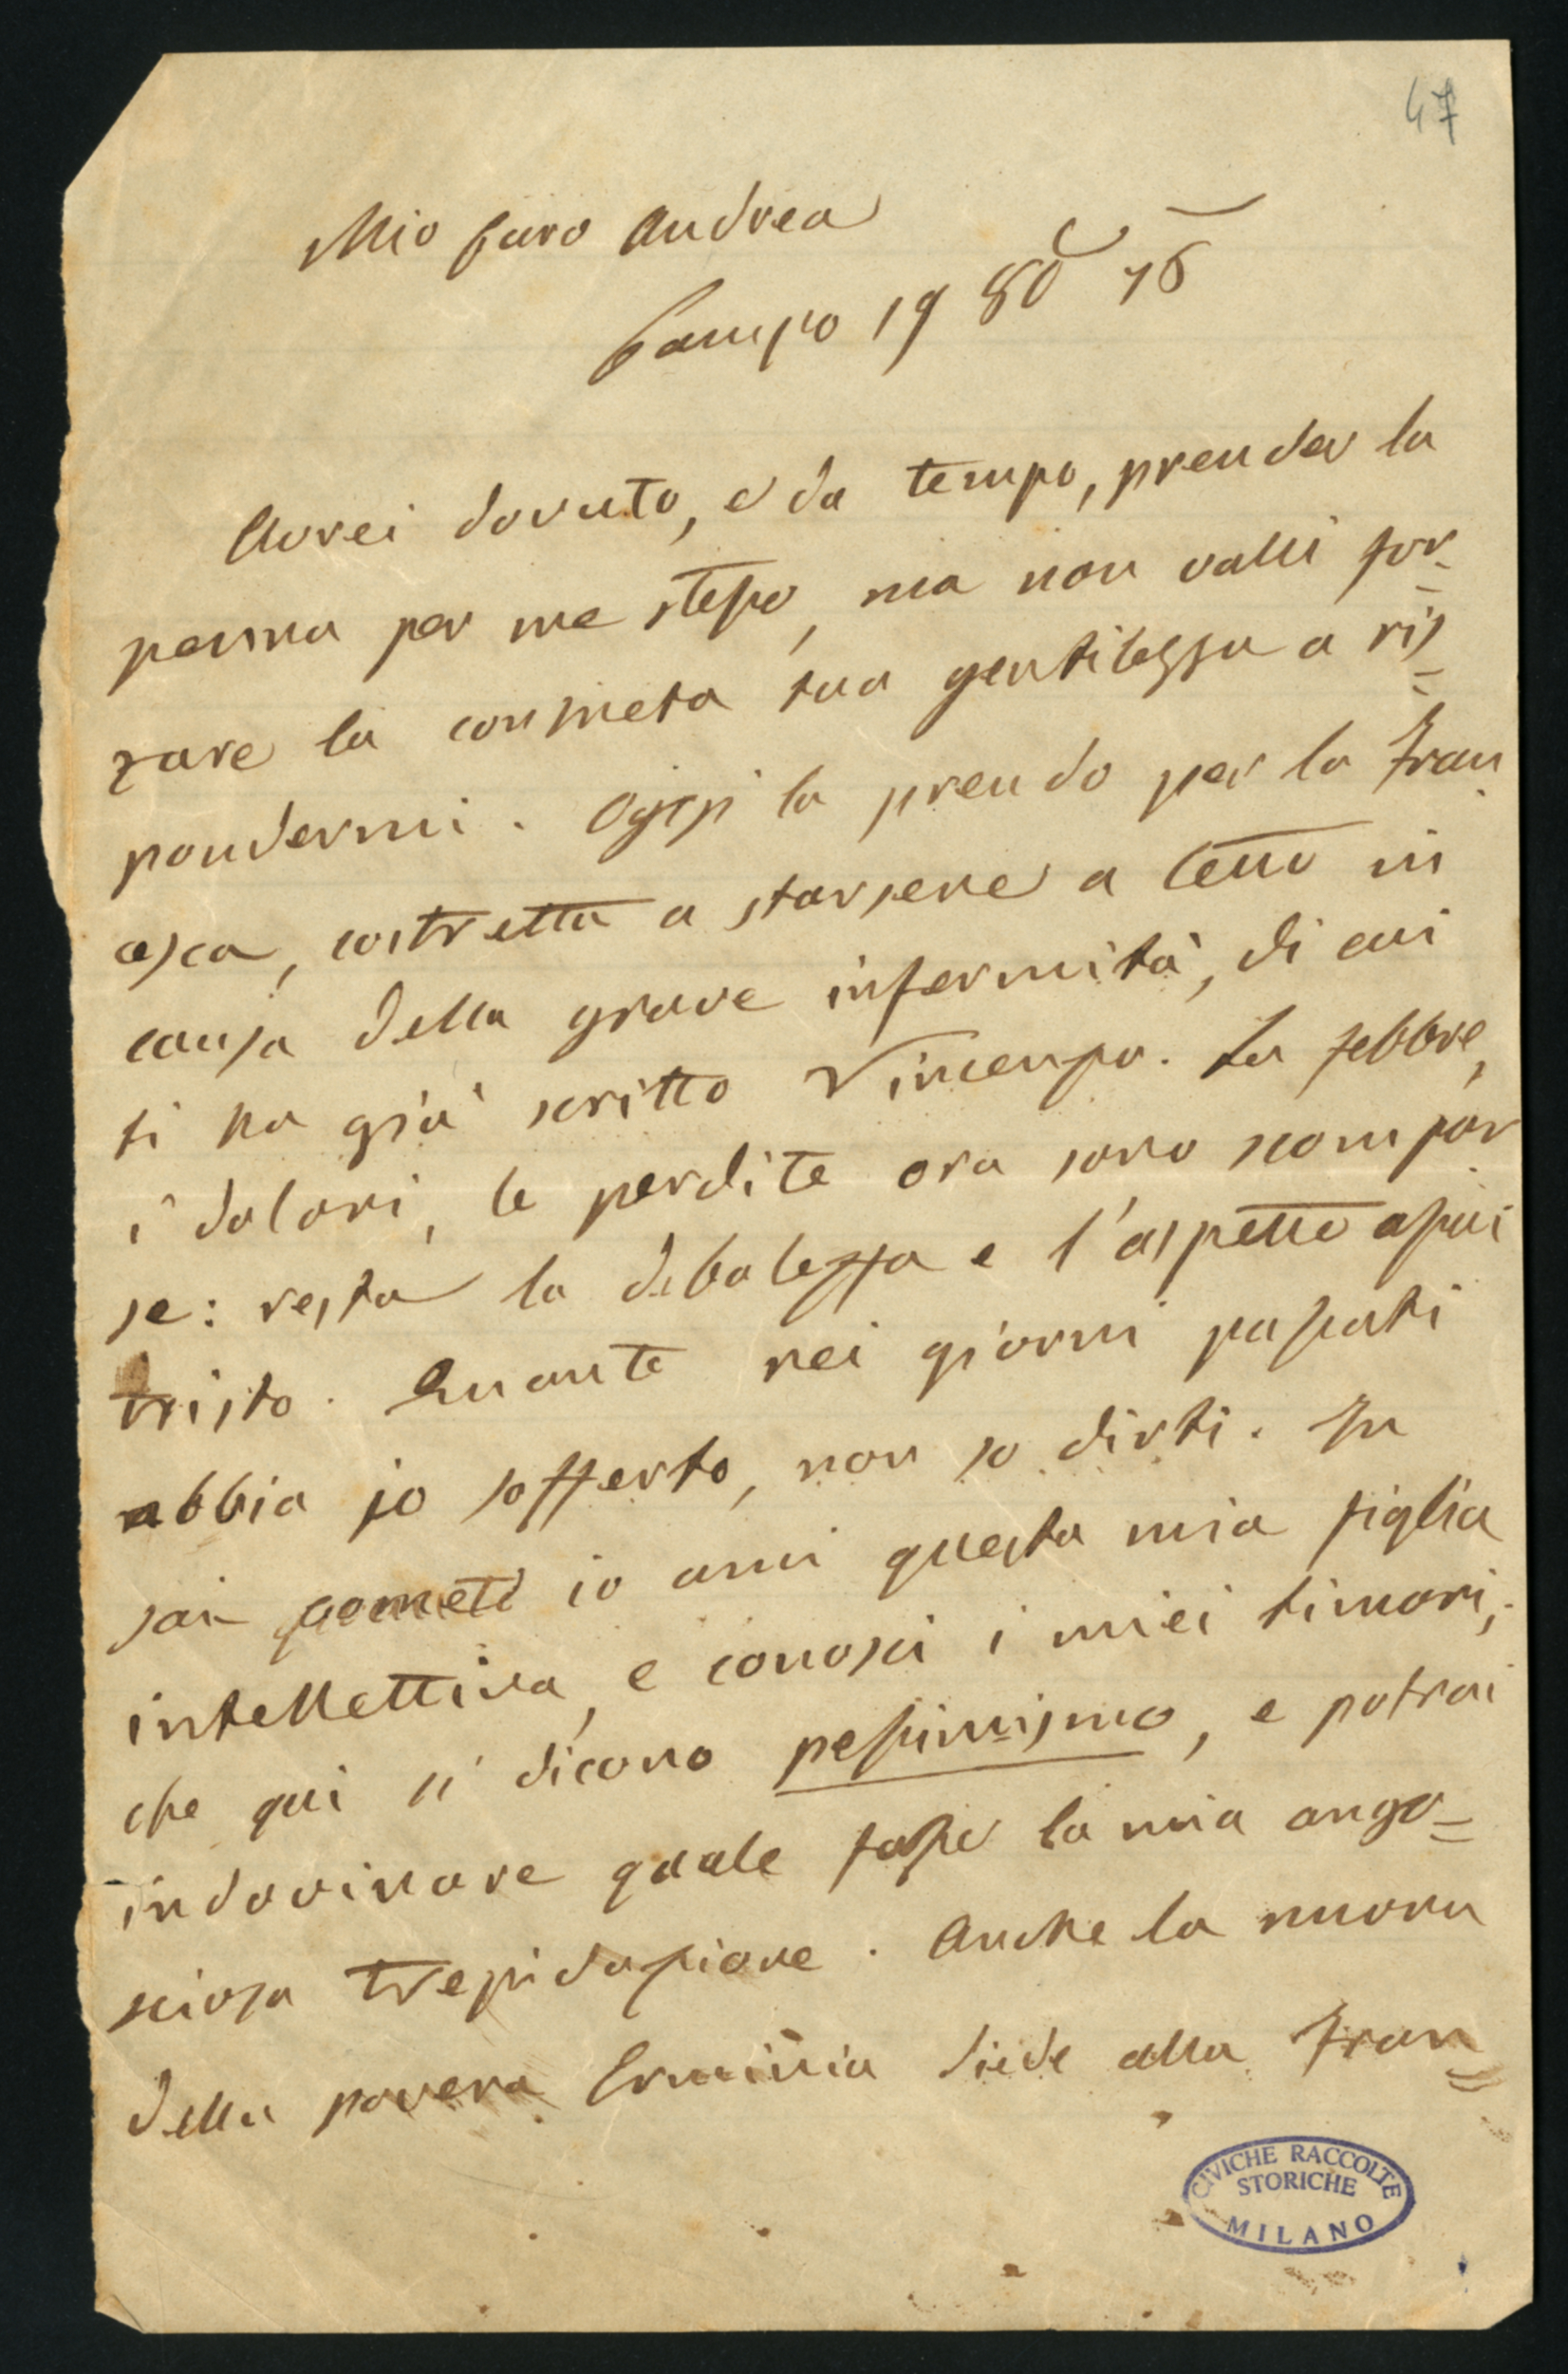 47
Mio Caro Andrea
Campo 19 80 76
Avrei dovuto, e da tempo, prender la
penna per me stesso, ma non valli for=
zare la consueta tua gentilezza a ris=
pondermi. Oggi la prendo per la Fran
cesca, costretta a starsene a letto in
causa della grave infermità, di cui
ti ha già scritto Vincenzo. La febbre,
i dolori, le perdite ora sono scompar
se: resta la debolezza e l'aspetto assai
tristo. Quante nei giorni passati
abbia io sofferto, non so dirti. Tu
sai come io ami questa mia figlia
intellettiva, e conosci i miei timori,
che qui si dicono pessimismo, e potrai
indovinare quale fosse la mia ango=
sciosa trepidazione. Anche la nuora
della povera Erminia diede alla Fran=
CIVICHE RACCOLTE
STORICHE
MILANO